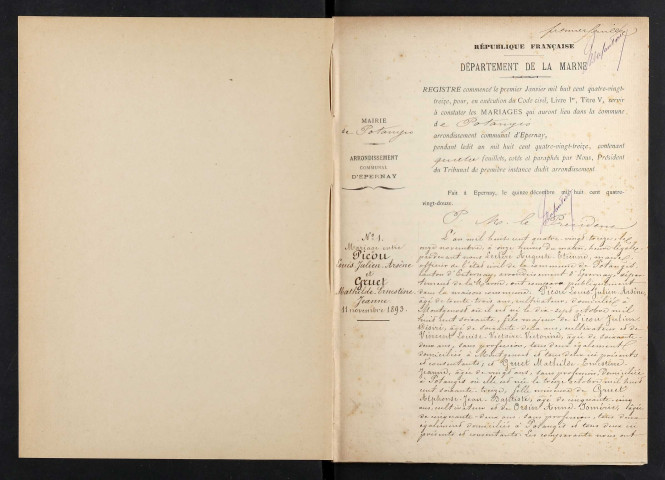 premier feuillet
RÉPUBLIQUE FRANÇAISE
DÉPARTEMENT DE LA MARNE
REGISTRE commencé le premier Janvier mil huit cent quatre-vingt-
treize, pour, en exécution du Code civil, Livre Ier, Titre V, servir
à constater les MARIAGES qui auront lieu dans la commune
de Potangis
arrondissement communal d'Epernay,
pendant ledit an mil huit cent quatre-vingt-treize, contenant
quatre feuillets, cotés et paraphés par Nous, Président
du Tribunal de première instance dudit arrondissement
Fait à Epernay, le quinze décembre mil huit cent quatre-
vingt-douze.
P. Mr. le Président
MAIRIE
de Potangis
ARRONDISSEMENT
COMMUNAL
D'EPERNAY
No 1.
Mariage entre
Picou
Louis Julien Arsène
et
Gruet
Mathilde Ernestine
Jeanne
11 novembre 1893.
L'an mil huit cent quatre-vingt treize, le
onze novembre, à onze heures du matin,
officier de l'état civil de la commune de Potangis,
canton d'Esternay, arrondissement d'Epernay, dépar-
tement de la Marne, ont comparu publiquement
dans la maison commune, Picou Louis Julien Arsène,
âgé de trente trois ans, cultivateur, domicilié à
Montgenost où il est né le dix-sept octobre mil
huit cent soixante, fils majeur de Picou Julien
Désiré, âgé de soixante deux ans, cultivateur et de
Vincent Louise Victoire Victorine, âgée de soixante
deux ans, sans profession, tous deux également
domiciliés à Montgenost et tous deux ici présents
et consentants, et Gruet Mathilde Ernestine
Jeanne, âgée de vingt ans, sans profession, domiciliée
à Potangis où elle est née le treize octobre mil huit
cent soixante treize, fille mineure de Gruet
Alphonse Jean-Baptiste, âgé de cinquante-cinq
ans, cultivateur et de âgée
de cinquante deux ans, sans profession, tous deux
également domiciliés à Potangis et tous deux ici
présents et consentants. Les comparants nous ont